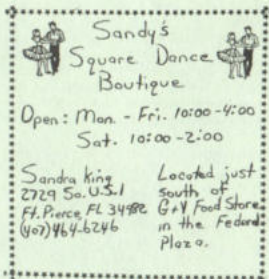 Sandy's
Square Dance
Boutique
Open: Mon. - Fri. 10:00-4:00
Sat. 10:00-2:00
Sandra King
2729 So. U.S.1
Ft. Pierce, FL 34982
(407) 464-6246
Located just
south of
G+Y Food Store
in the Federal
Plaza.